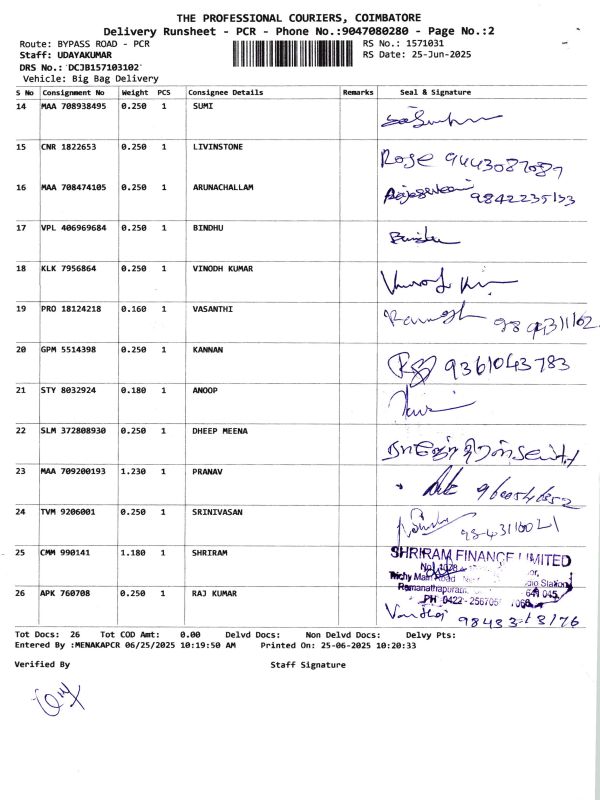 THE PROFESSIONAL COURIERS, COIMBATORE
Delivery Runsheet - PCR - Phone No.:9047080280 - Page No.:2
Route: BYPASS ROAD - PCR RS No.: 1571031
Staff: UDAYAKUMAR RS Date: 25-Jun-2025
DRS No.: DCJB157103102
Vehicle: Big Bag Delivery
S No Consignment No Weight PCS Consignee Details Remarks Seal & Signature
14 MAA 708938495 0.250 1 SUMI
15 CNR 1822653 0.250 1 LIVINSTONE
Rose 9443087087
16 MAA 708474105 0.250 1 ARUNACHALLAM
9842235133
17 VPL 406969684 0.250 1 BINDHU
18 KLK 7956864 0.250 1 VINODH KUMAR
19 PRO 18124218 0.160 1 VASANTHI
20 GPM 5514398 0.250 1 KANNAN
9361043783
21 STY 8032924 0.180 1 ANOOP
22 SLM 372808930 0.250 1 DHEEP MEENA
23 MAA 709200193 1.230 1 PRANAV
24 TVM 9206001 0.250 1 SRINIVASAN
25 CMM 990141 1.180 1 SHRIRAM
SHRIRAM FINANCE LIMITED
Trichy Main Road
Ramanathapuram, 641 045
26 APK 760708 0.250 1 RAJ KUMAR
Tot Docs: 26 Tot COD Amt: 0.00 Delvd Docs: Non Delvd Docs: Delvy Pts:
Entered By :MENAKAPCR 06/25/2025 10:19:50 AM Printed On: 25-06-2025 10:20:33
Verified By Staff Signature